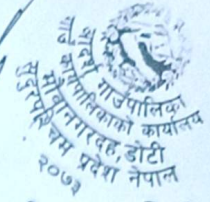 आदर्श गाउँपालिका
गाउँ कार्यपालिकाको कार्यालय
भावानगरदह, डोटी
सुदुरपश्चिम प्रदेश नेपाल
२०७३